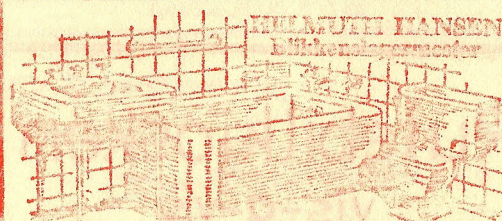 HELMUTH HANSEN
Blikkenslagermester